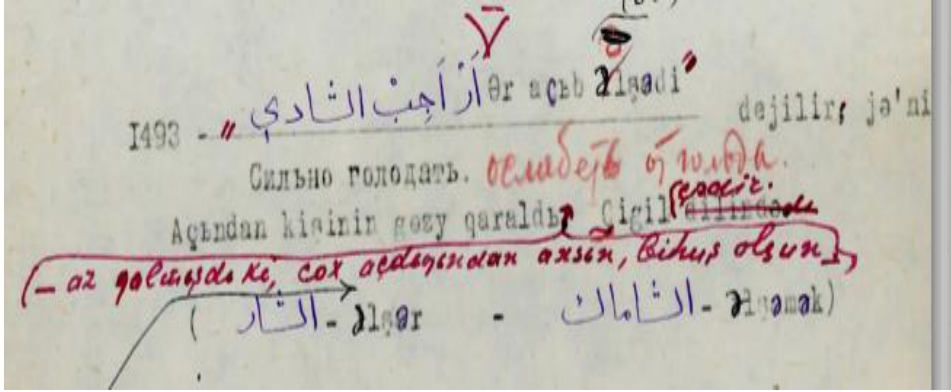 1493 - " اَرْ اَجِبْ الشادي Ər açьb əlşədi" dejilir; jə'ni
Сильно голодать. ослабеть от голода.
Açьndan kişinin gɵzy qaraldь. Çigil
(— az qalmışdı ki, çox acdığından axsın, bihuş olsun),
( الشار - əlşər - الشاماك - əlşəmək)